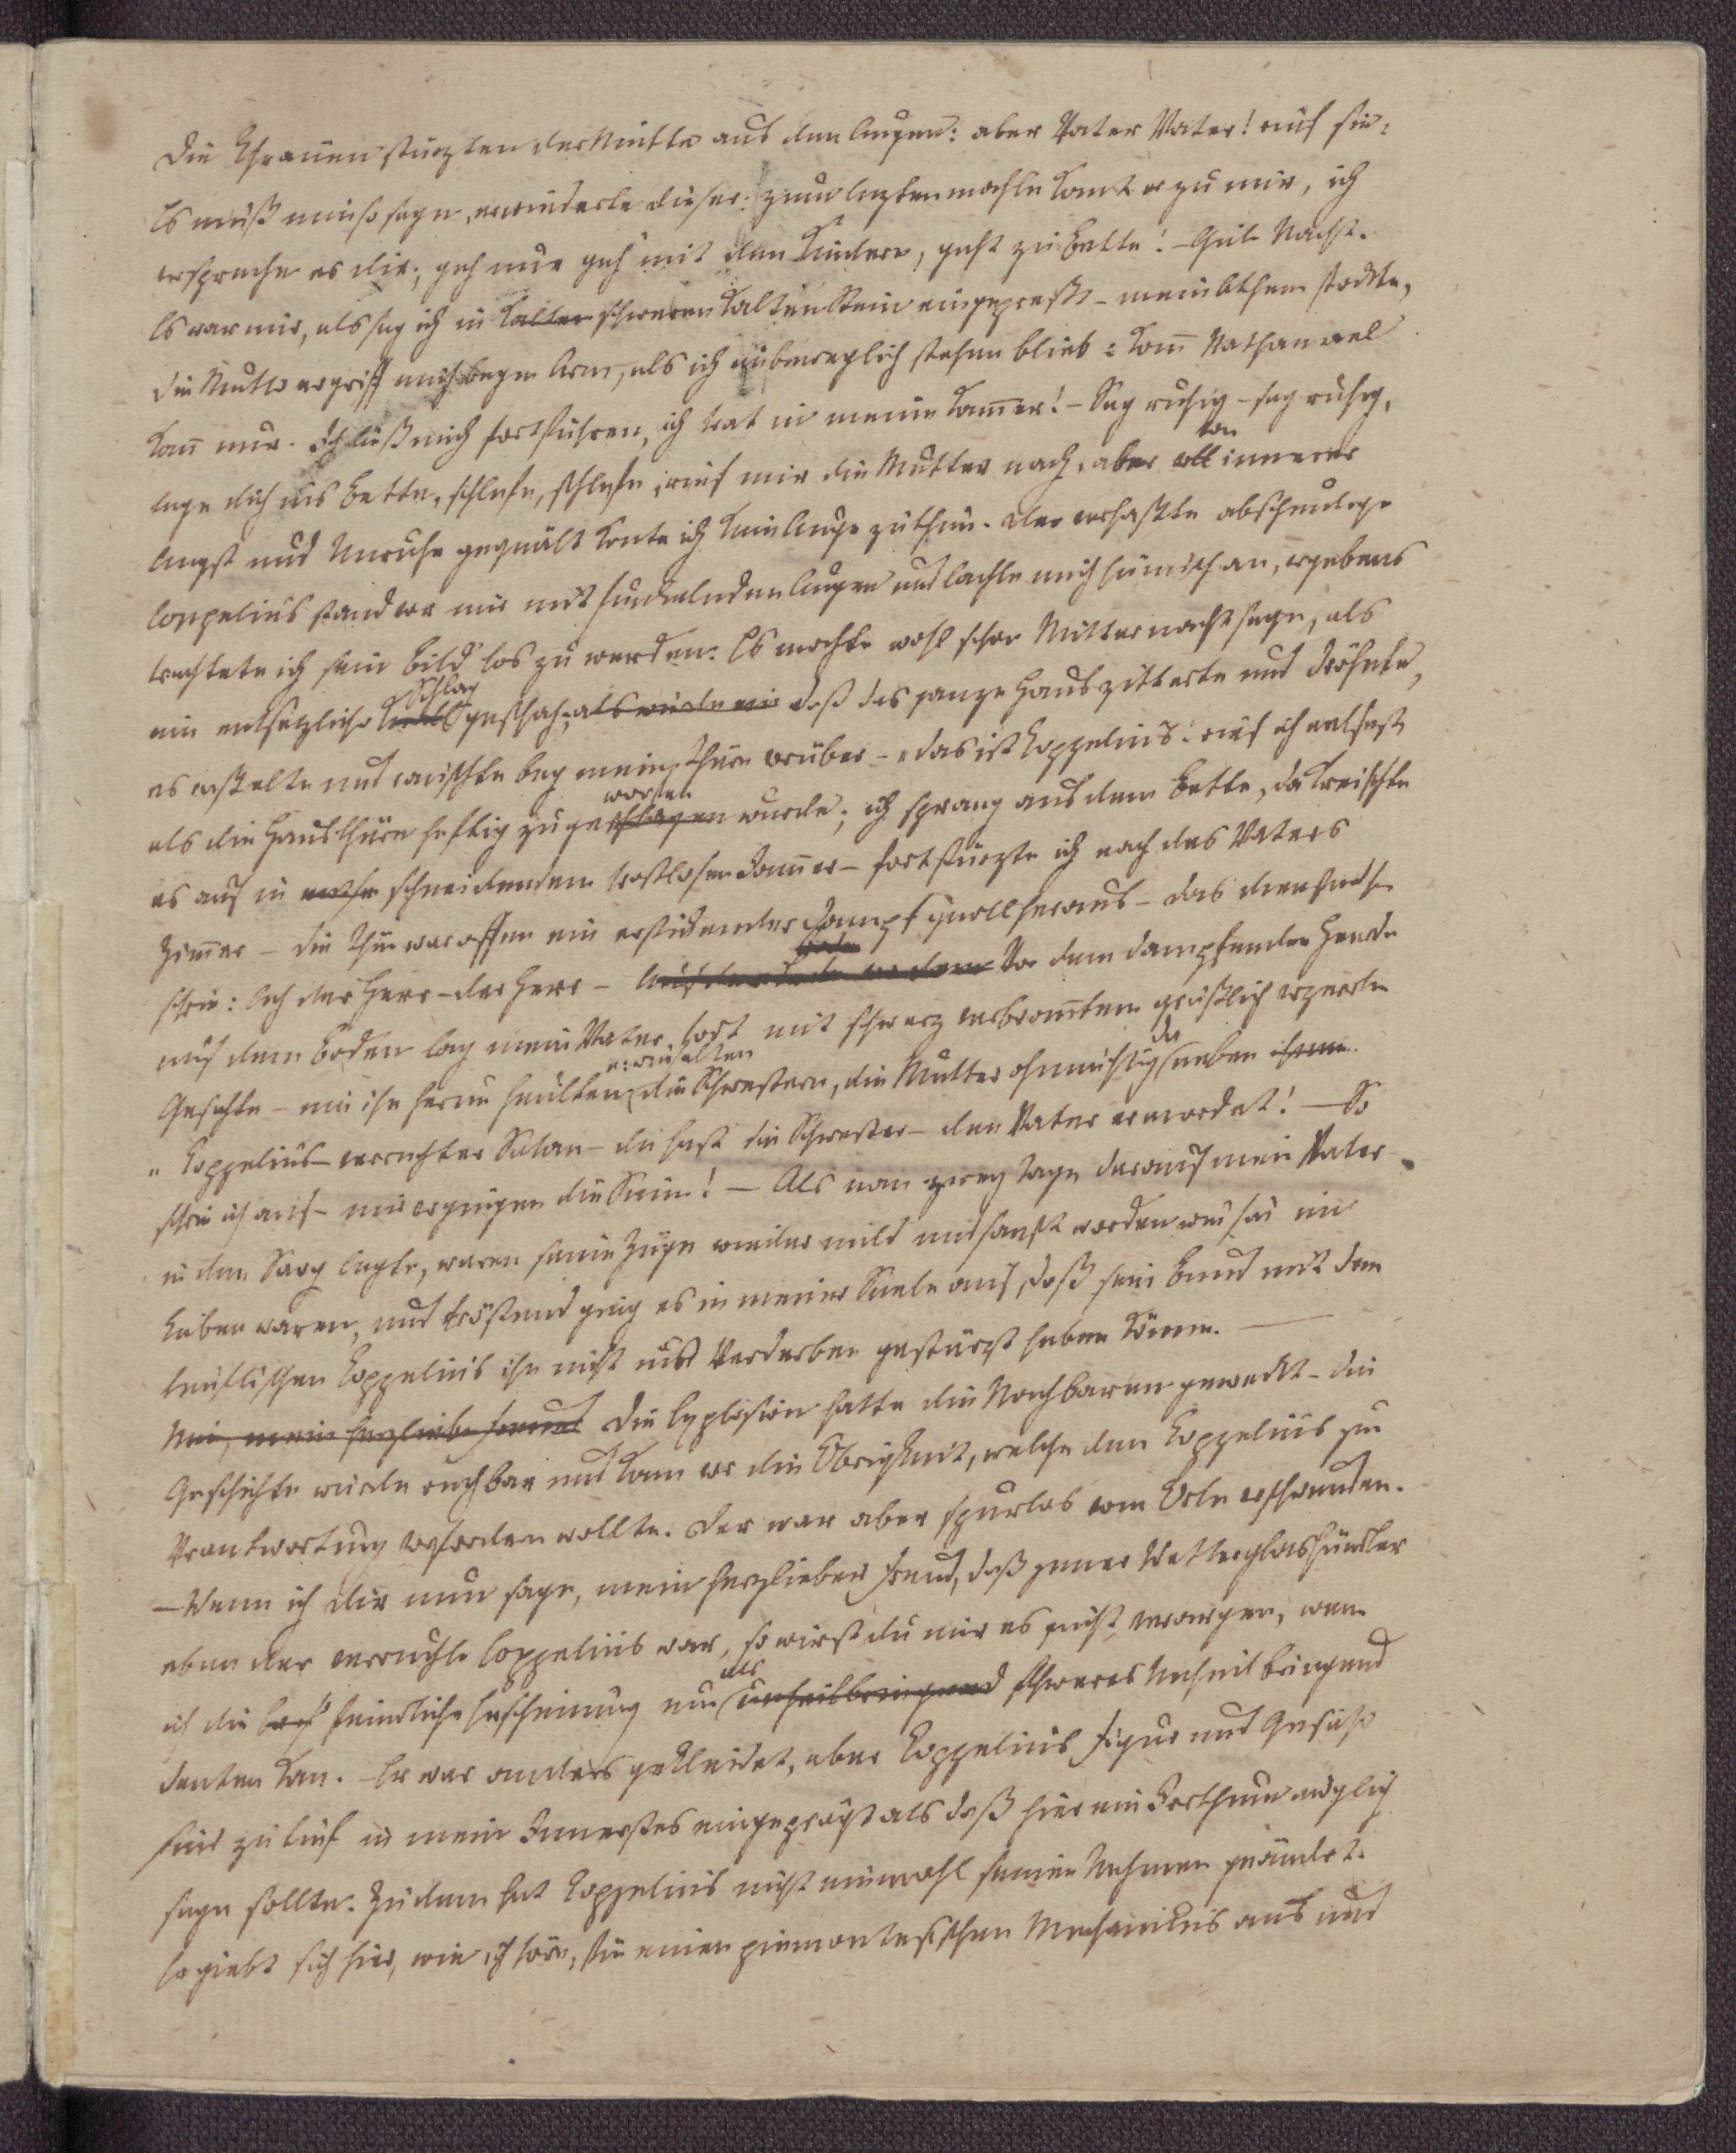 Die Thränen stürzten der Mutter aus den Augen: aber Vater Vater! rief sie:
Es muß nun so seyn, erwiederte dieser: zum leztenmahle komt er zu mir, ich
verspreche es dir; geh nur geh mit den Kindern, geht zu Bette! – Gute Nacht.
Es war mir, als sey ich in kalten schweren kalten Stein eingepreßt – mein Athem stockte,
die Mutter ergriff mich beym Arm, als ich unbeweglich stehen blieb: Kom Nathanael
kom nur. Ich ließ mich fortführen, ich trat in meine Kamer! – Sey ruhig – sey ruhig,
von
lege dich ins Bette, schlafe, schlafe, rief mir die Mutter nach, aber innerer
Angst und Unruhe gequält konte ich kein Auge zuthun. Der verhaßte abscheulige
Coppelius stand vor mir mit funkelnden Augen und lachte mich hämisch an, vergebens
trachtete ich sein Bild los zu werden. Es mochte wohl schon Mitternacht seyn, als
Schlag
ein entsetzlicher geschah, als würde ein daß das ganze Haus zitterte und dröhnte,
es raßelte und rauschte bey meiner Thüre vorüber – das ist Coppelius: rief ich entsezt
worfen
als die Hausthüre heftig zugeschlagen wurde; ich sprang aus dem Bette, da kreischte
es auf in schneidendem trostlosen Jamer – fort stürzte ich nach des Vaters
Zimer – die Thür war offen ein erstickender Dampf quoll heraus – das Dienstmädchen
schrie: Ach der Herr – der Herr – Vor dem dampfenden Heerde
auf dem Boden lag mein Vater todt mit schwarz verbrantem gräßlich verzerrten
u: winselten
da
Gesichte – um ihn herum heulten die Schwestern, die Mutter ohnmächtig neben ihnen.
„Coppelius – verruchter Satan – du hast die Schwester – den Vater ermordet! – So
schrie ich auf – mir vergingen die Sinne! – Als man zwey Tage darauf mein Vater
in den Sarg legte, waren seine Züge wieder mild und sanft worden wie sie im
Leben waren, und tröstend ging es in meiner Seele auf, daß sein Bund mit dem
teuflischen Coppelius ihn nicht ins Verderben gestürzt haben könne. –
Nun, mein herzlieber Freund Die Explosion hatte die Nachbaren geweckt – die
Geschichte wurde ruchbar und kam vor die Obrigkeit, welche den Coppelius zur
Verantwortung vorfordern wollte. Der war aber spurlos vom Orte verschwunden.
– Wenn ich dir nun sage, mein herzlieber Freund, daß jener Wetterglashändler
eben der verruchte Coppelius war, so wirst du mir es nicht verargen, wenn
als
ich die feindliche Erscheinung nur unheilbringend schweres Unheil bringend
deuten kan. – Er war anders gekleidet, aber Coppelius Figur und Gesicht
sind zu tief in mein Innerstes eingeprägt als daß hier ein Irrthum möglich
seyn sollte. Zudem hat Coppelius nicht einmahl seinen Nahmen geändert.
Er giebt sich hier, wie ich höre, für einen piemontesischen Mechanikus aus und